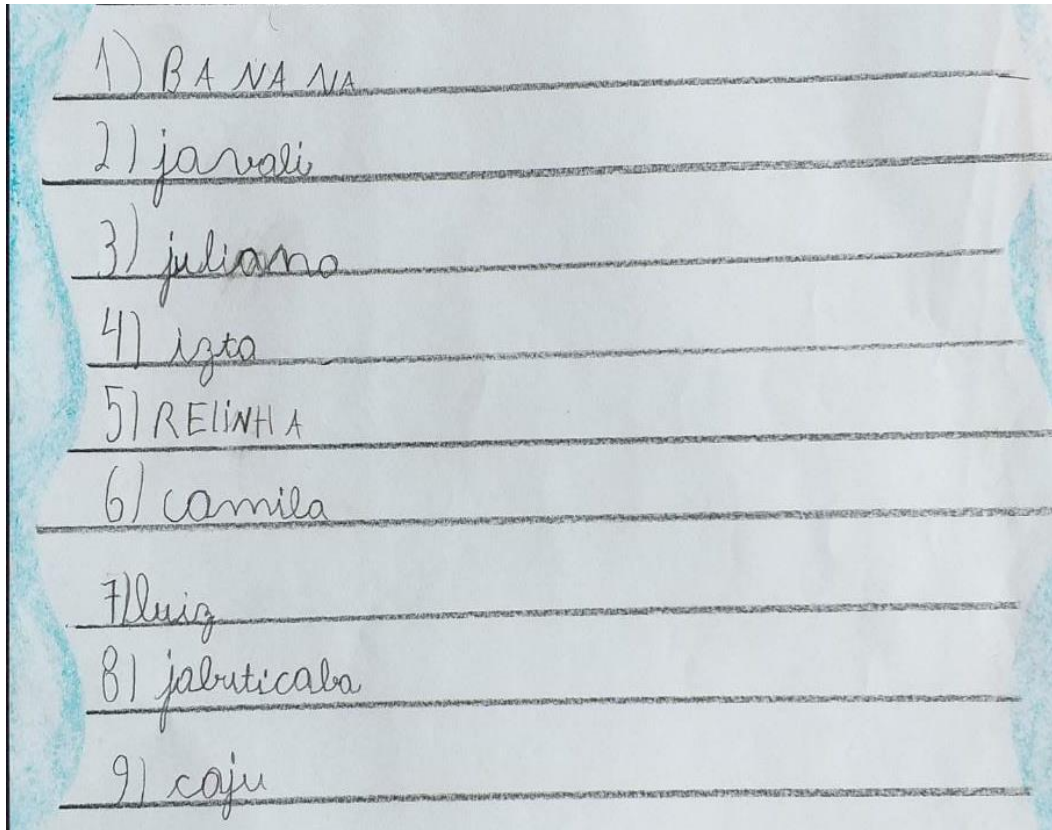 1) BANANA
2) javali
3) juliano
4) izto
5) RELINHA
6) camila
7) luiz
8) jabuticaba
9) caju